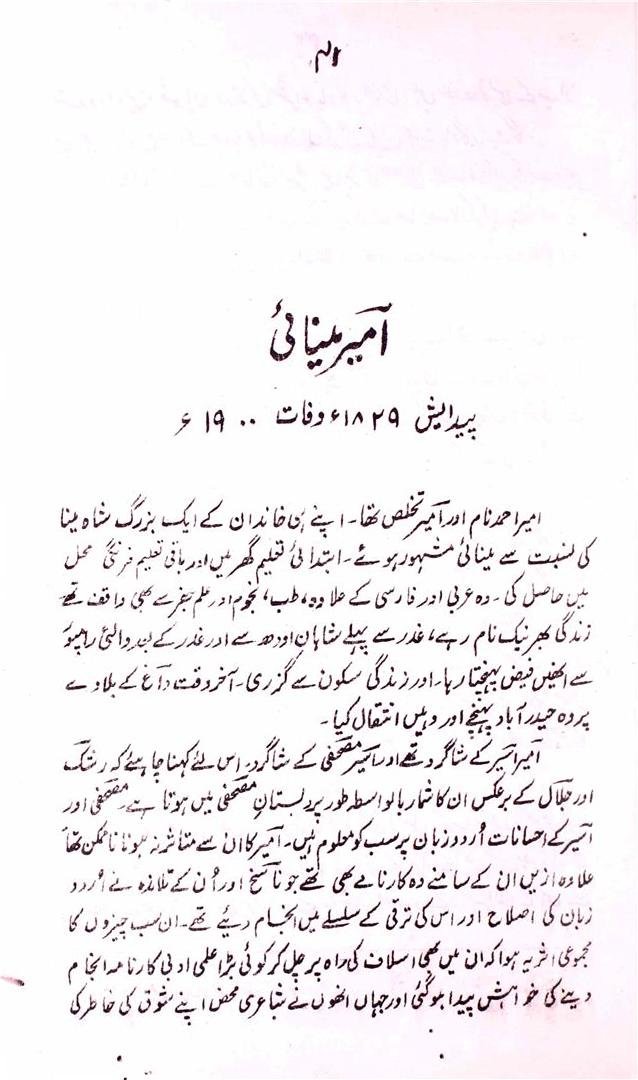 ۴۱
آمیر مینائی
پیدایش ۱۸۲۹ء وفات ۱۹۰۰ء
امیر احمد نام اور آمیر تخلص تھا۔ اپنے ہی خاندان کے ایک بزرگ شاہ مینا
کی نسبت سے مینائی مشہور ہوئے۔ ابتدائی تعلیم گھر میں اور باقی تعلیم فرنگی محل
میں حاصل کی۔ وہ عربی اور فارسی کے علاوہ، طب، نجوم اور علم جفر سے بھی واقف تھے
زندگی بھر نیک نام رہے، غدر سے پہلے شاہان اودھ سے اور غدر کے بعد والئی رامپور
سے انھیں فیض پہنچتا رہا۔ اور زندگی سکون سے گزری۔ آخر وقت داغ کے بلاوے
پر وہ حیدرآباد پہنچے اور وہیں انتقال کیا۔
آمیر اسیر کے شاگرد تھے اور اسیر مصحفی کے شاگرد۔ اس لئے کہنا چاہیئے کہ رشک
اور جلال کے برعکس ان کا شمار بالواسطہ طور پر دبستانِ مصحفی میں ہوتا ہے۔ مصحفی اور
آسیر کے احسانات اُردو زبان پر سب کو معلوم ہیں۔ آمیر کا ان سے متاثر نہ ہونا ناممکن تھا
علاوہ ازیں ان کے سامنے وہ کارنامے بھی تھے جو ناسخ اور اُن کے تلامذہ نے اُردو
زبان کی اصلاح اور اس کی ترقی کے سلسلے میں انجام دیئے تھے۔ ان سب چیزوں کا
مجموعی اثر یہ ہوا کہ ان میں بھی اسلاف کی راہ پر چل کر کوئی بڑا علمی ادبی کارنامہ انجام
دینے کی خواہش پیدا ہو گئی اور جہاں انھوں نے شاعری محض اپنے شوق کی خاطر کی